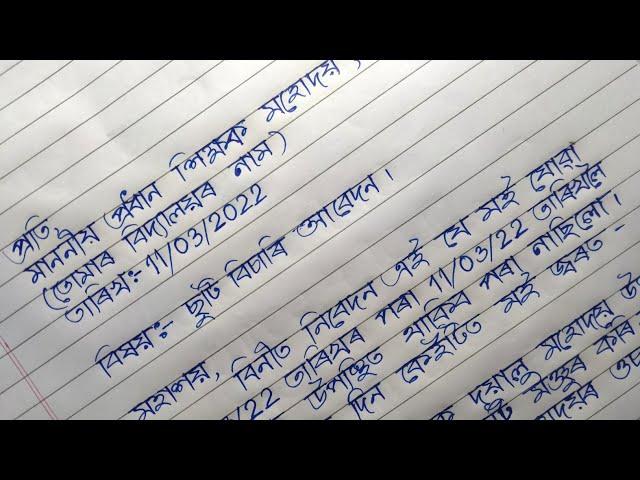 প্ৰতি
মাননীয় প্ৰধান শিক্ষক মহোদয়,
(তোমাৰ বিদ্যালয়ৰ নাম)
তাৰিখ:- 11/03/2022
বিষয়:- ছুটী বিচাৰি আবেদন।
মহাশয়, বিনীত নিবেদন এই যে মই যোৱা
/22 তাৰিখৰ পৰা 11/03/22 তাৰিখলৈ
উপস্থিত থাকিব পৰা নাছিলো।
দিন কেইটাত মই জ্বৰত -
দয়ালু মহোদয়
মঞ্জুৰ কৰি